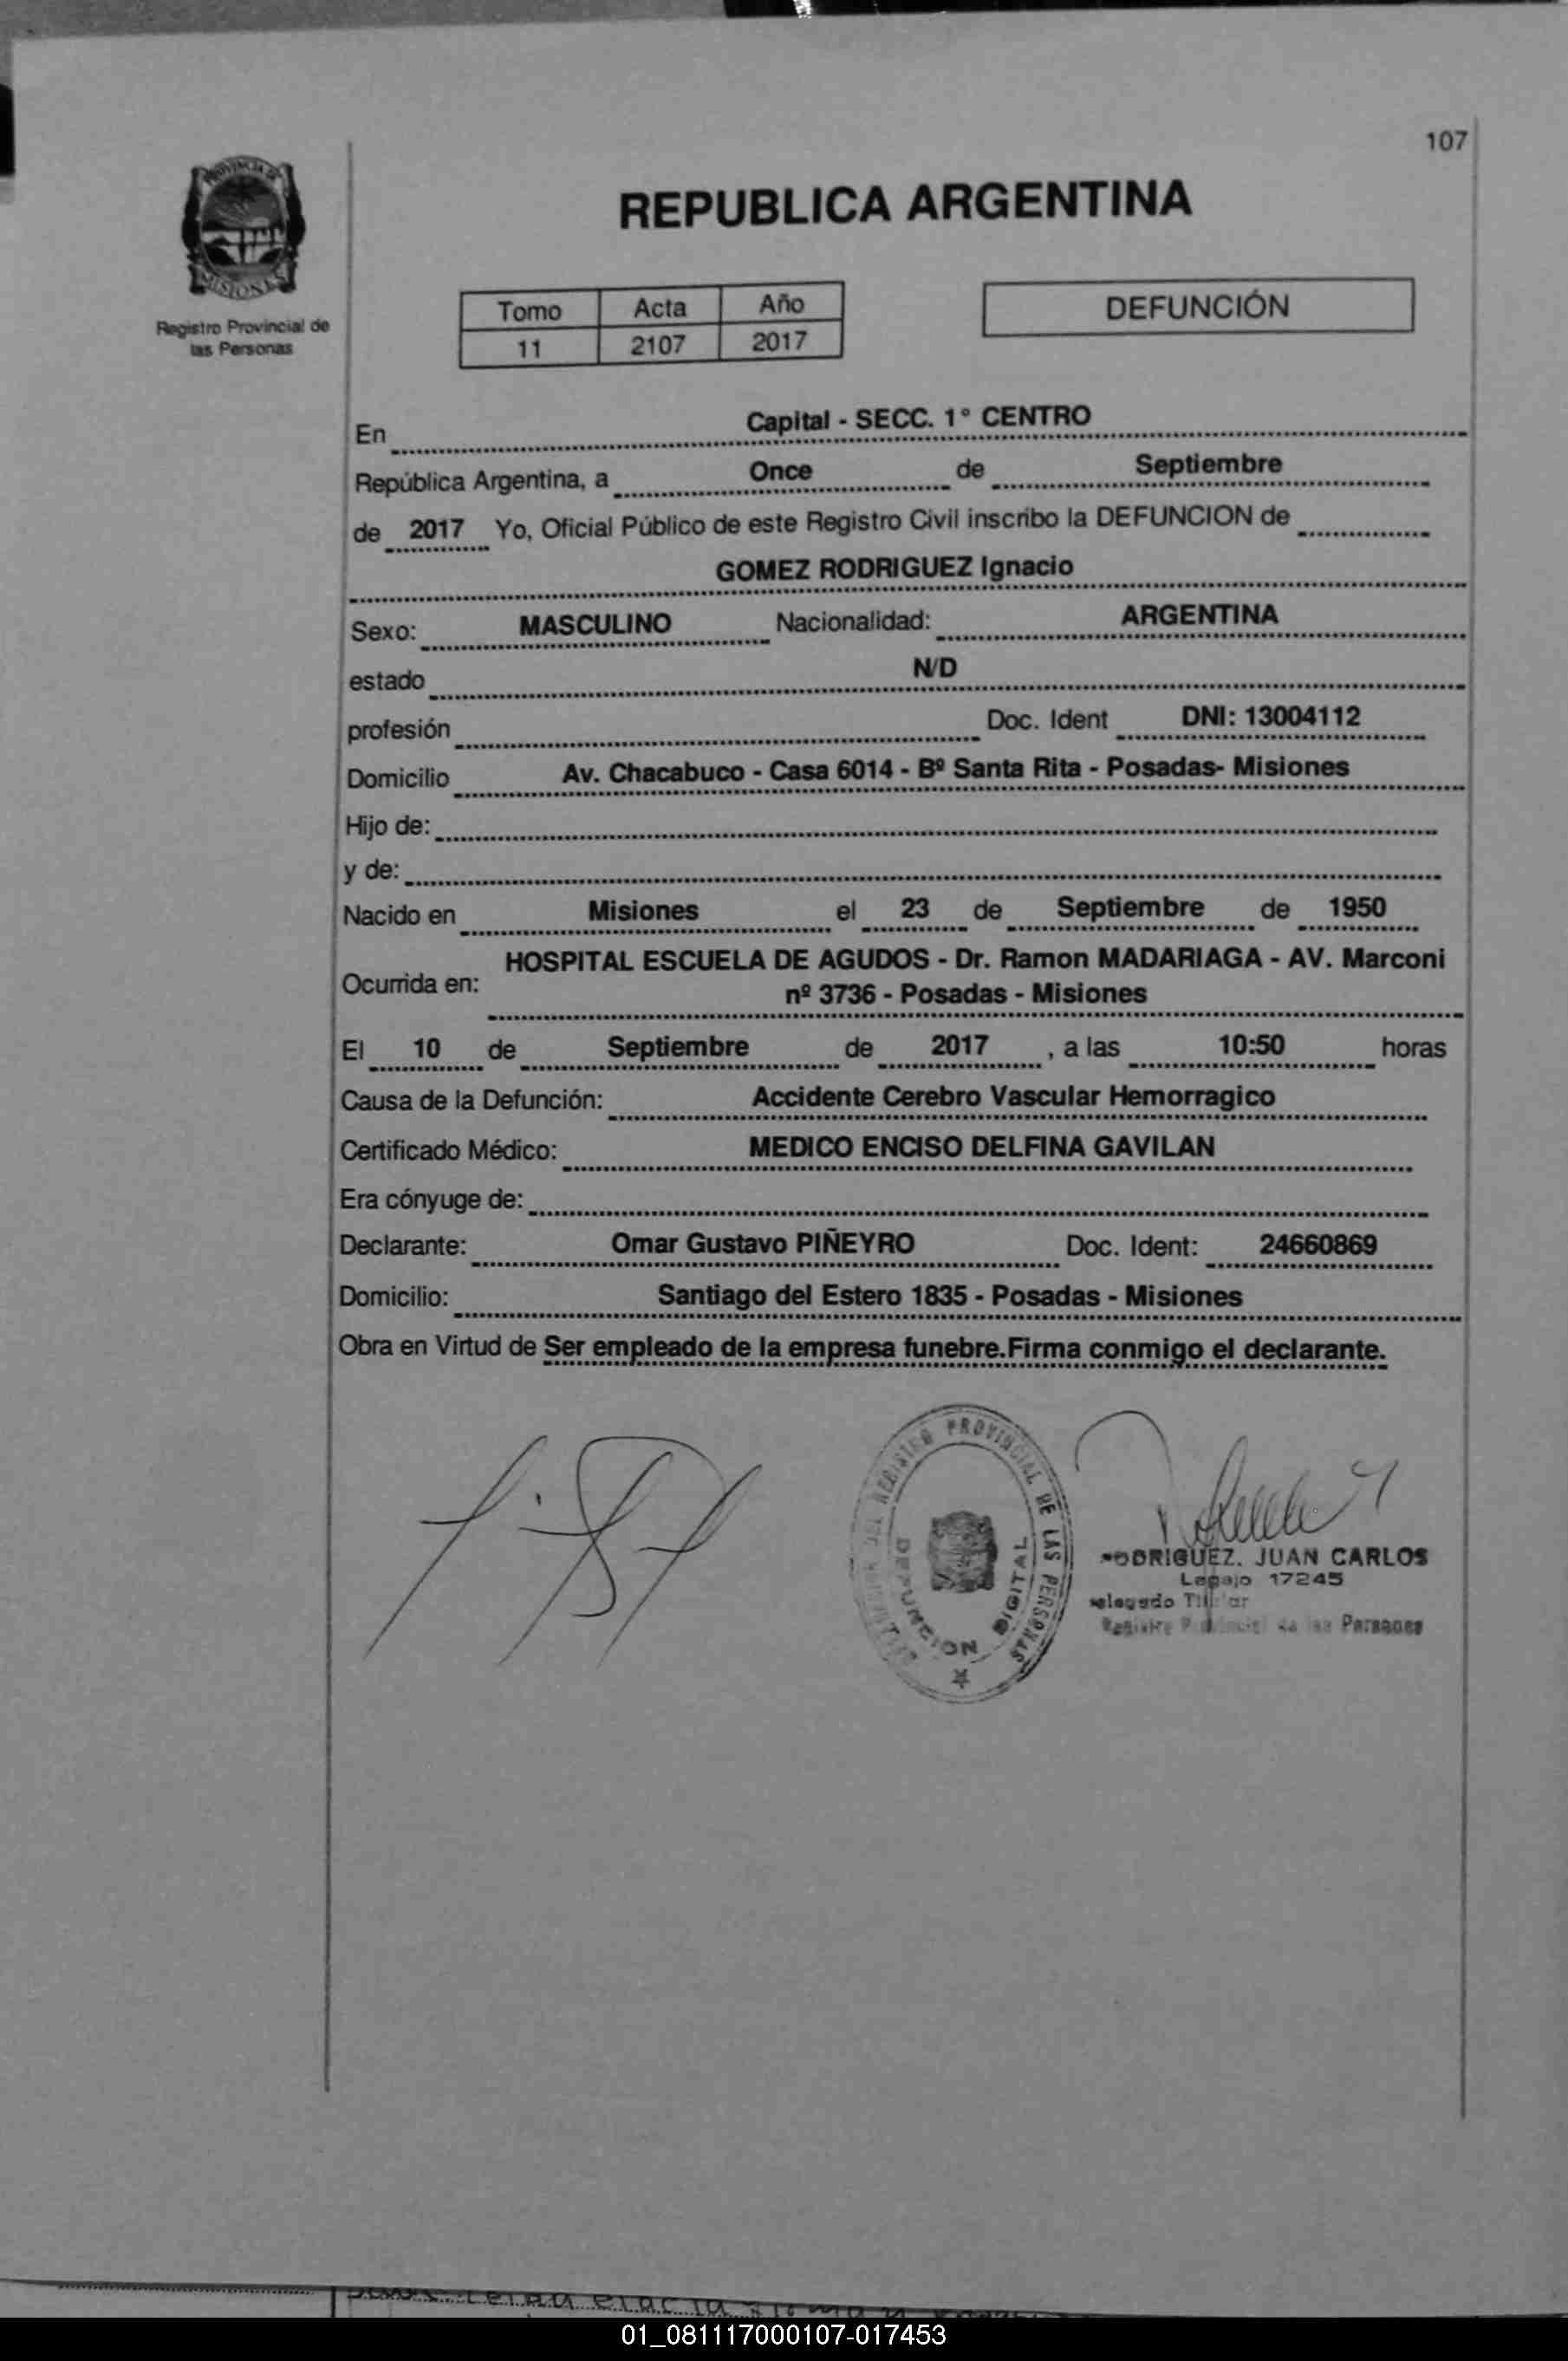 107
PROVINCIA DE
MISIONES
Registro Provincial de
las Personas
REPUBLICA ARGENTINA
Tomo Acta Año
11 2107 2017
DEFUNCIÓN
En Capital - SECC. 1° CENTRO
República Argentina, a Once de Septiembre
de 2017 Yo, Oficial Público de este Registro Civil inscribo la DEFUNCION de
GOMEZ RODRIGUEZ Ignacio
Sexo: MASCULINO Nacionalidad: ARGENTINA
estado N/D
profesión Doc. Ident DNI: 13004112
Domicilio Av. Chacabuco - Casa 6014 - Bº Santa Rita - Posadas- Misiones
Hijo de:
y de:
Nacido en Misiones el 23 de Septiembre de 1950
HOSPITAL ESCUELA DE AGUDOS - Dr. Ramon MADARIAGA - AV. Marconi
Ocurrida en: nº 3736 - Posadas - Misiones
El 10 de Septiembre de 2017 , a las 10:50 horas
Causa de la Defunción: Accidente Cerebro Vascular Hemorragico
Certificado Médico: MEDICO ENCISO DELFINA GAVILAN
Era cónyuge de:
Declarante: Omar Gustavo PIÑEYRO Doc. Ident: 24660869
Domicilio: Santiago del Estero 1835 - Posadas - Misiones
Obra en Virtud de Ser empleado de la empresa funebre.Firma conmigo el declarante.
DEL REGISTRO PROVINCIAL DE LAS PERSONAS
DEFUNCION DIGITAL
RODRIGUEZ. JUAN CARLOS
Legajo 17245
Personas
01_081117000107-017453